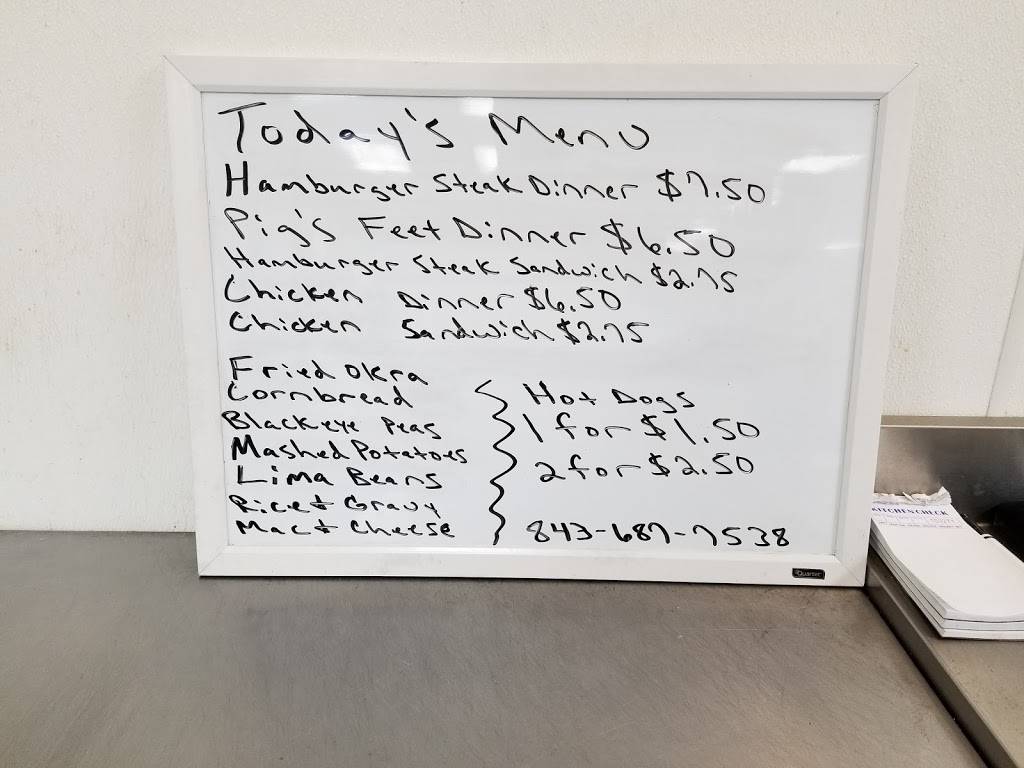 Today's Menu
Hamburger Steak Dinner $7.50
Pig's Feet Dinner $6.50
Hamburger Steak Sandwich $2.75
Chicken Dinner $6.50
Chicken Sandwich $2.75
Fried Okra
Cornbread
Blackeye Peas
Mashed Potatoes
Lima Beans
Rice & Gravy
Mac & Cheese
Hot Dogs
1 for $1.50
2 for $2.50
843-687-7538
Quartet
KITCHEN CHECK